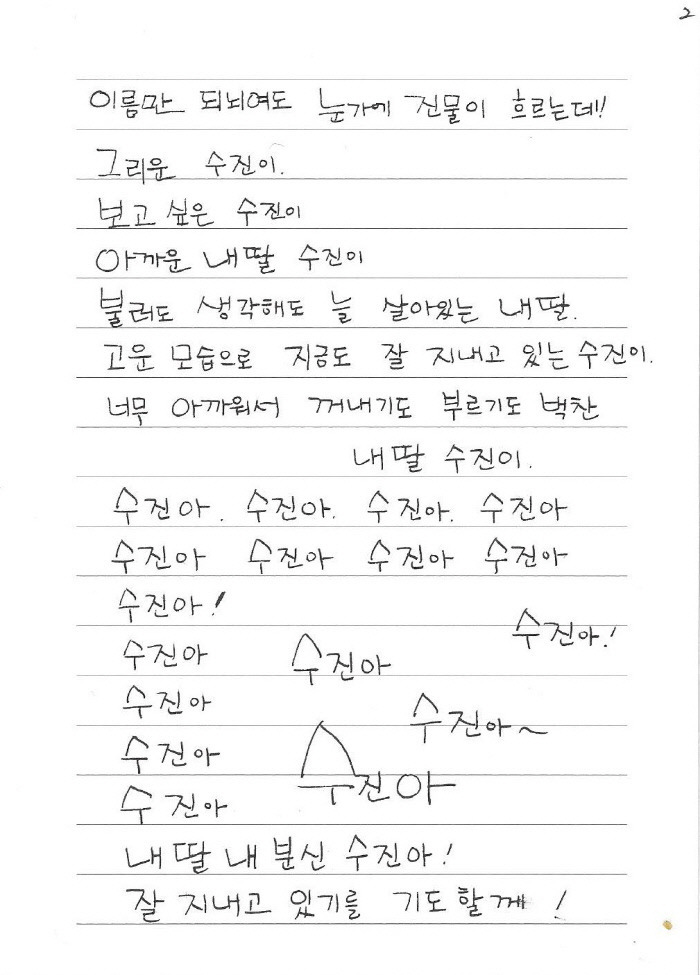 2
이름만 되뇌여도 눈가에 진물이 흐르는데!!
그리운 수진이.
보고 싶은 수진이
아까운 내딸 수진이
불러도 생각해도 늘 살아있는 내딸.
고운 모습으로 지금도 잘 지내고 있는 수진이.
너무 아까워서 꺼내기도 부르기도 벅찬
내딸 수진이.
수진아. 수진아. 수진아. 수진아
수진아 수진아 수진아 수진아
수진아!
수진아!
수진아 수진아
수진아 수진아~
수진아 수진아
수진아
내 딸 내 분신 수진아!
잘 지내고 있기를 기도할께!